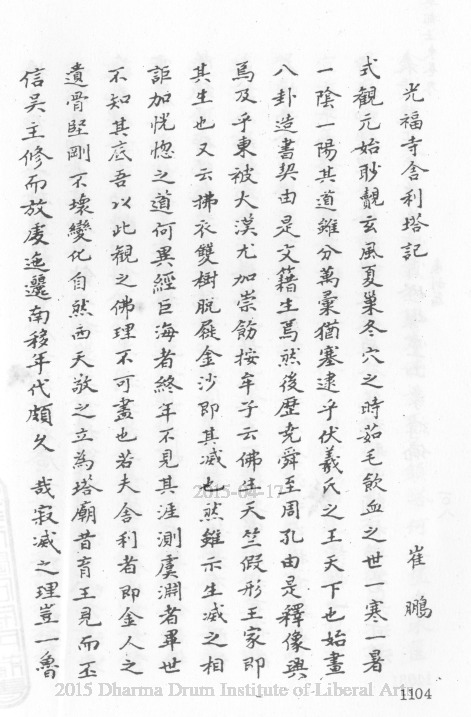 光福寺舍利塔記 崔鵬
式観元始眇覿玄風夏巢冬穴之時茹毛飲血之世一寒一暑
一陰一陽其道雖分萬彙猶塞逮乎伏羲氏之王天下也始畫
八卦造書契由是文籍生焉然後歷堯舜至周孔由是釋像興
焉及乎東被大漢尤加崇飾按牟子云佛生天竺假形王家即
其生也又云拂衣雙樹脫屣金沙即其滅也然雖示生滅之相
詎加恍惚之道何異經巨海者終年不見其涯測虞淵者畢世
不知其底吾以此観之佛理不可盡也若夫舍利者即金人之
遺骨堅剛不壞變化自然西天敬之立為塔廟昔育王見而至
信吴主修而放虔迤邐南移年代頗久 哉寂滅之理豈一魯
1104
2015-04-17
2015 Dharma Drum Institute of Liberal Arts